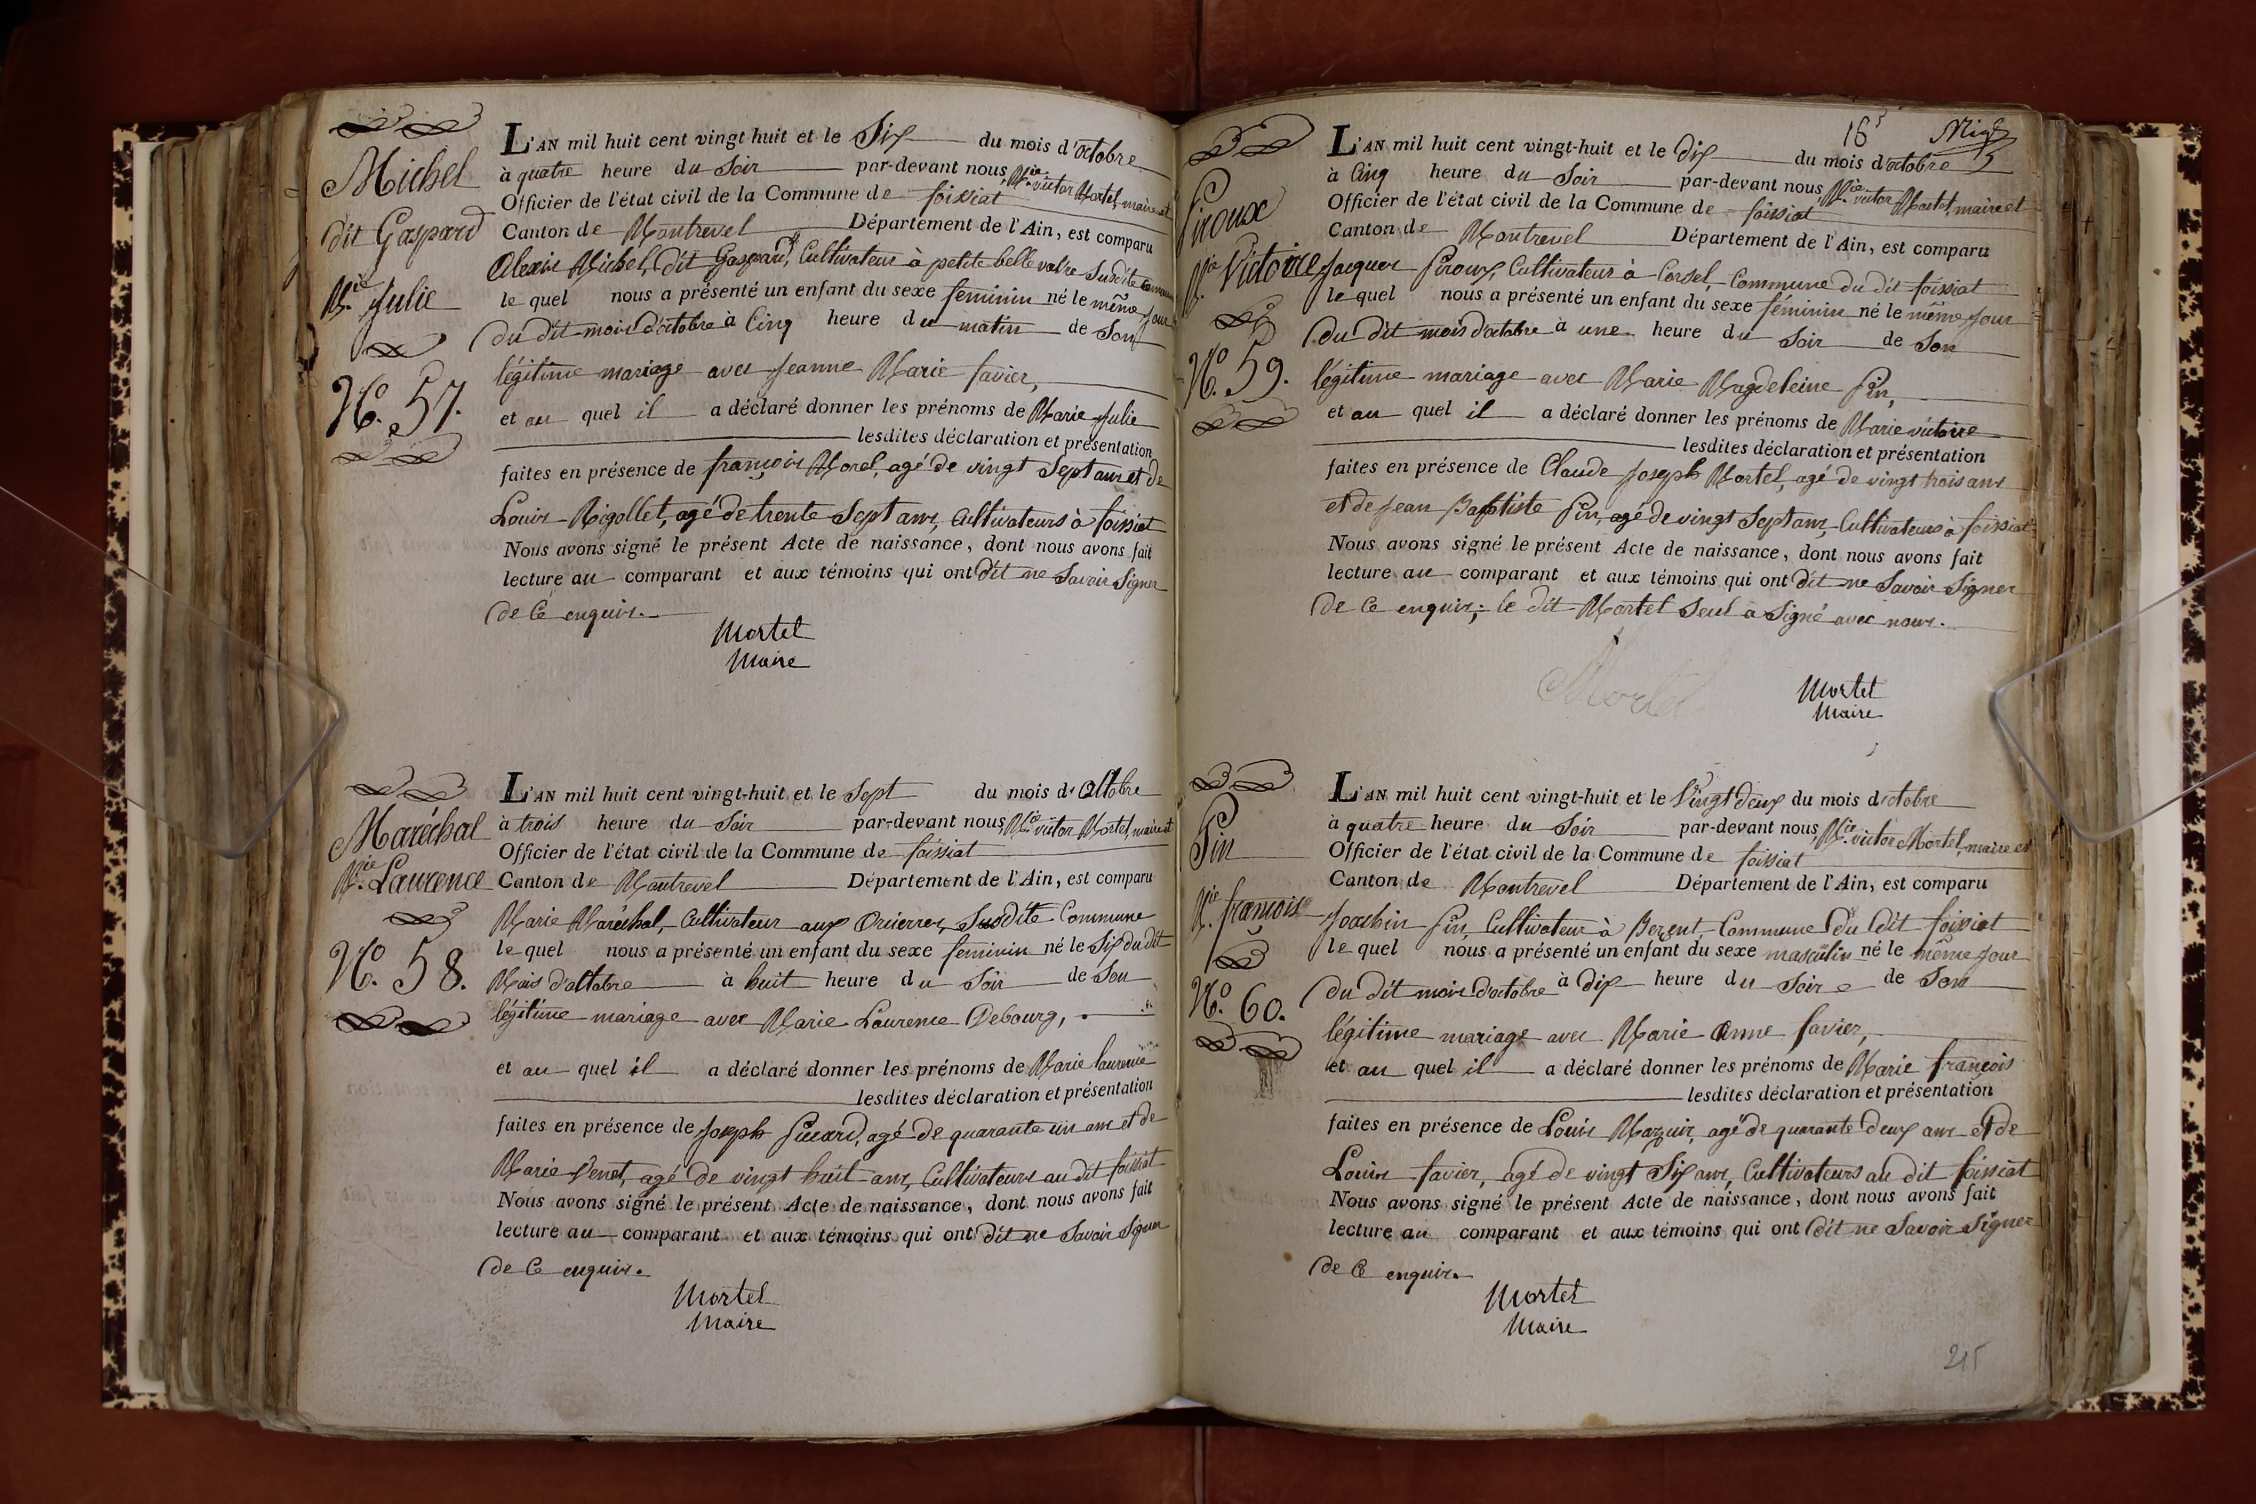 Michel
dit Gaspard
M.ie Julie
N.o 57.
L'AN mil huit cent vingt huit et le Six du mois d'octobre
à quatre heure du Soir par-devant nous M.ie victor Mortel, maire et
Officier de l'état civil de la Commune de foissiat
Canton de Montrevel Département de l'Ain, est comparu
Alexis Michel, dit Gaspard, Cultivateur à petite bellevavre Susdite Commune
le quel nous a présenté un enfant du sexe feminin né le même jour
du dit mois d'octobre à Cinq heure du matin de Son
légitime mariage avec Jeanne Marie favier,
et au quel il a déclaré donner les prénoms de Marie Julie
lesdites déclaration et présentation
faites en présence de françois Morel, agé de vingt Sept ans et de
Louis Rigollet, agé de trente Sept ans, Cultivateurs à foissiat
Nous avons signé le présent Acte de naissance, dont nous avons fait
lecture au comparant et aux témoins qui ont dit ne Savoir Signer
de Ce enquis.
Mortel
Maire
Maréchal
M.ie Laurence
N.o 58.
L'AN mil huit cent vingt-huit et le Sept du mois d'Octobre
à trois heure du Soir par-devant nous M.ie victor Mortel, maire et
Officier de l'état civil de la Commune de foissiat
Canton de Montrevel Département de l'Ain, est comparu
Marie Maréchal, Cultivateur aux Susdite Commune
le quel nous a présenté un enfant du sexe feminin né le Six du dit
Mois d'octobre à huit heure du Soir de Son
légitime mariage avec Marie Laurence Debourg,
et au quel il a déclaré donner les prénoms de Marie laurence
lesdites déclaration et présentation
faites en présence de Joseph agé de quarante un ans et de
Marie Venet, agé de vingt huit ans, Cultivateurs au dit foissiat
Nous avons signé le présent Acte de naissance, dont nous avons fait
lecture au comparant et aux témoins qui ont dit ne Savoir Signer
de Ce enquis.
Mortel
Maire
165
Piroux
M.ie Victoire
N.o 59.
L'AN mil huit cent vingt-huit et le dix du mois d'octobre
à Cinq heure du Soir par-devant nous M.ie victor Mortel, maire et
Officier de l'état civil de la Commune de foissiat
Canton de Montrevel Département de l'Ain, est comparu
Jacques Piroux, Cultivateur à Corsel, Commune du dit foissiat
le quel nous a présenté un enfant du sexe féminin né le même jour
du dit mois d'octobre à une heure du Soir de Son
légitime mariage avec Marie Magdeleine Pin,
et au quel il a déclaré donner les prénoms de Marie victoire
lesdites déclaration et présentation
faites en présence de Claude Joseph Mortel, agé de vingt trois ans
et de Jean Baptiste Pin, agé de vingt Sept ans, Cultivateurs à foissiat
Nous avons signé le présent Acte de naissance, dont nous avons fait
lecture au comparant et aux témoins qui ont dit ne Savoir Signer
de Ce enquis; le dit Mortel Seul a Signé avec nous.
Mortel
Mortel
Maire
Pin
M.ie françois
N.o 60.
L'AN mil huit cent vingt-huit et le Vingt deux du mois d'octobre
à quatre heure du Soir par-devant nous M.ie victor Mortel, maire et
Officier de l'état civil de la Commune de foissiat
Canton de Montrevel Département de l'Ain, est comparu
Joachin Pin, Cultivateur à Bezent, Commune Du dit foissiat
le quel nous a présenté un enfant du sexe masculin né le même jour
du dit mois d'octobre à dix heure du Soir de Son
légitime mariage avec Marie Anne favier,
et au quel il a déclaré donner les prénoms de Marie françois
lesdites déclaration et présentation
faites en présence de Louis Mazuir, agé de quarante deux ans et de
Louis favier, agé de vingt Six ans, Cultivateurs au dit foissiat
Nous avons signé le présent Acte de naissance, dont nous avons fait
lecture au comparant et aux témoins qui ont dit ne Savoir Signer
de Ce enquis.
Mortel
Maire
215